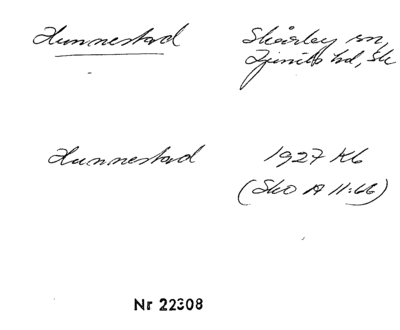 Hunnestad Skårby sn,
Ljunits hd, Sk
Hunnestad 1927 Kb
(SkO A 11:66)
Nr 22308